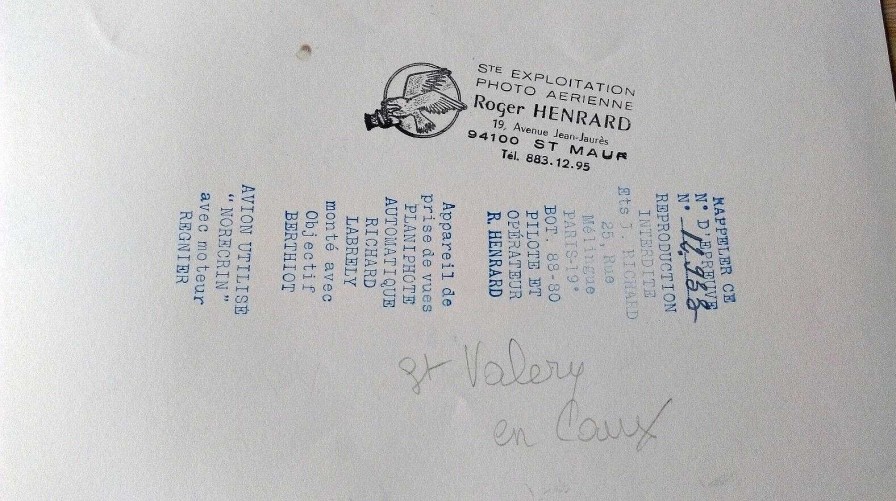 STE EXPLOITATION
PHOTO AERIENNE
Roger HENRARD
19, Avenue Jean-Jaurès
94100 ST MAUR
Tél. 883.12.95
RAPPELER CE
N° D'EPREUVE
N° 14.988
REPRODUCTION
INTERDITE
Ets J. RICHARD
25, Rue
Mélingue
PARIS-19°
BOT. 88-80
PILOTE ET
OPÉRATEUR
R. HENRARD
Appareil de
prise de vues
PLANIPHOTE
AUTOMATIQUE
RICHARD
LABRELY
monté avec
Objectif
BERTHIOT
AVION UTILISÉ
"NORECRIN"
avec moteur
REGNIER
St Valery
en Caux